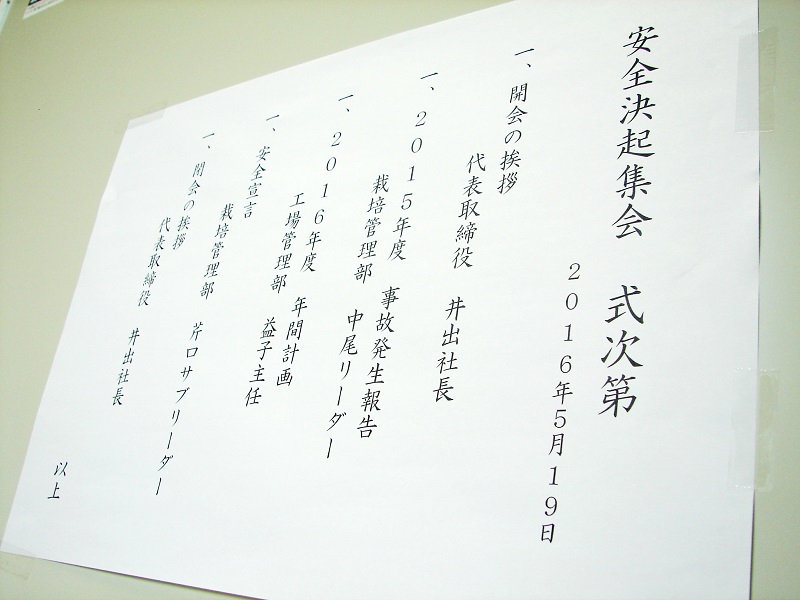 安全決起集会　式次第
２０１６年５月１９日
一、開会の挨拶
代表取締役　井出社長
一、２０１５年度　事故発生報告
栽培管理部　中尾リーダー
一、２０１６年度　年間計画
工場管理部　益子主任
一、安全宣言
栽培管理部　芹口サブリーダー
一、閉会の挨拶
代表取締役　井出社長
以上